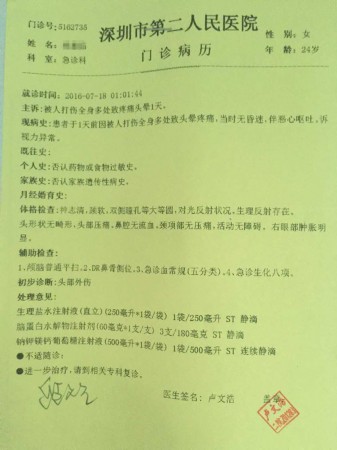 门诊号:5162755
深圳市第二人民医院
性 别: 女
姓 名:
门诊病历
年 龄: 24岁
科 室: 急诊科
就诊时间: 2016-07-18 01:01:44
主诉: 被人打伤全身多处致疼痛头晕1天。
现病史: 患者于1天前因被人打伤全身多处致头晕疼痛, 当时无昏迷, 伴恶心呕吐, 诉
视力异常。
既往史:
个人史: 否认药物或食物过敏史。
家族史: 否认家族遗传性病史。
月经婚育史:
体格检查: 神志清, 颈软, 双侧瞳孔等大等圆, 对光反射状况、生理反射存在。
头形状无畸形, 头部压痛, 鼻腔无流血, 颈项部无压痛, 活动无障碍。右眼部肿胀明
显。
辅助检查:
1、颅脑普通平扫、2、DR鼻骨侧位、3、急诊血常规(五分类)、4、急诊生化八项。
初步诊断: 头部外伤
处理意见:
生理盐水注射液(直立)(250毫升*1袋/袋) 1袋/250毫升 ST 静滴
脑蛋白水解物注射剂(60毫克*1支/支) 3支/180毫克 ST 静滴
钠钾镁钙葡萄糖注射液(500毫升*1袋/袋) 1袋/500毫升 ST 连续静滴
●不适随诊:
●进一步治疗, 请到相关专科复诊。
医生签名: 卢文浩
卢文浩